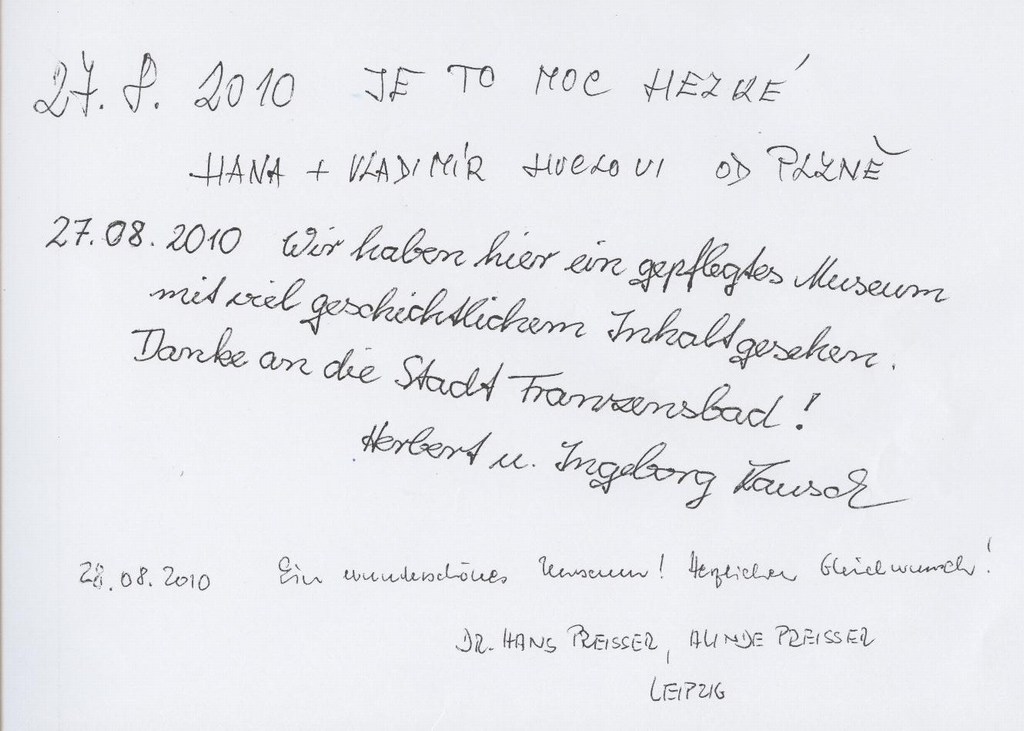 27. 8. 2010 JE TO MOC HEZKÉ
HANA + VLADIMÍR OD PLZNĚ
27.08.2010 Wir haben hier ein gepflegtes Museum
mit viel geschichtlichem Inhalt gesehen.
Danke an die Stadt Franzensbad!
Herbert u. Ingeborg Kausch
28.08.2010 Ein wunderschönes Museum! Herzlichen Glückwunsch!
DR. HANS PREISSER, PREISSER
LEIPZIG